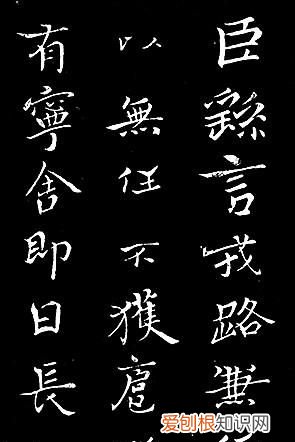 臣繇言戎路兼
以無任不獲扈
有寧舍即日長
爱刨根知识网